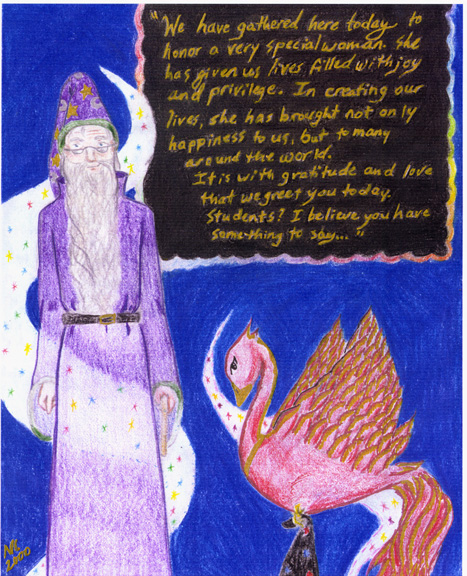 "We have gathered here today to
honor a very special woman. She
has given us lives filled with joy
and privilege. In creating our
lives, she has brought not only
happiness to us, but to many
around the world.
It is with gratitude and love
that we greet you today.
Students? I believe you have
something to say..."
2000